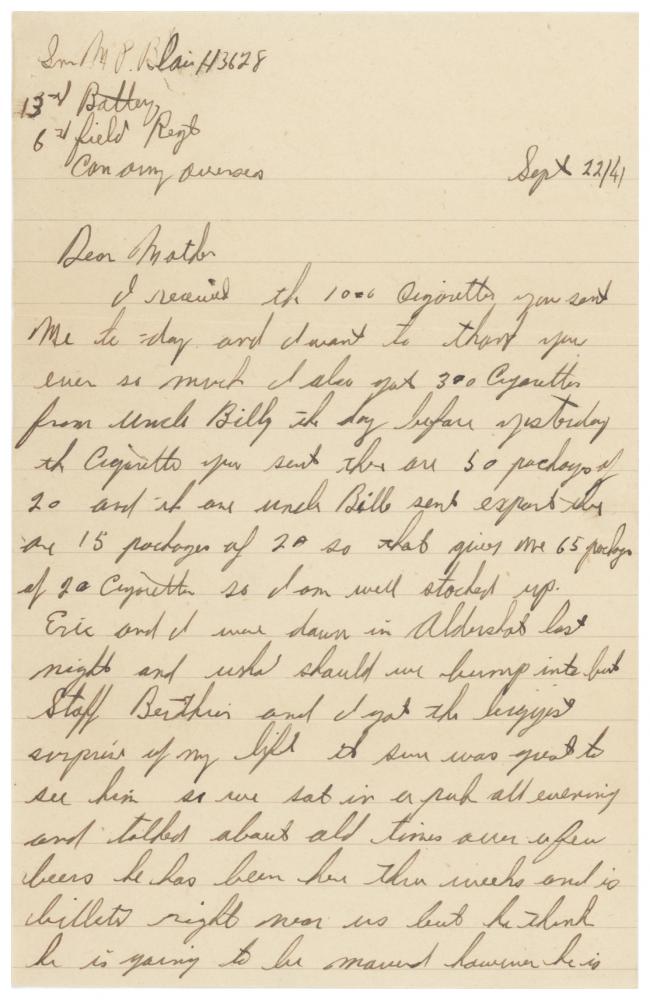 M P. Blair H3628
13rd Battery
6rd field Regt
Can army overseas
Sept 22/41
Dear Mother
I received the 1000 Cigarettes you sent
Me to-day and I want to thank you
ever so much I also got 300 Cigarettes
from Uncle Billy the day before yesterday
the Cigarette you sent there are 50 packages of
20 and the one uncle Bill sent export there
are 15 packages of 20 so that gives me 65 packages
of 20 Cigarettes so I am well stocked up.
Eric and I were down in Aldershot last
night and who should we bump into but
Staff and I got the biggest
surprise of my life it sure was great to
see him so we sat in a pub all evening
and talked about old times over a few
beers he has been here three weeks and is
billets right near us but he think
he is going to be moved however he is